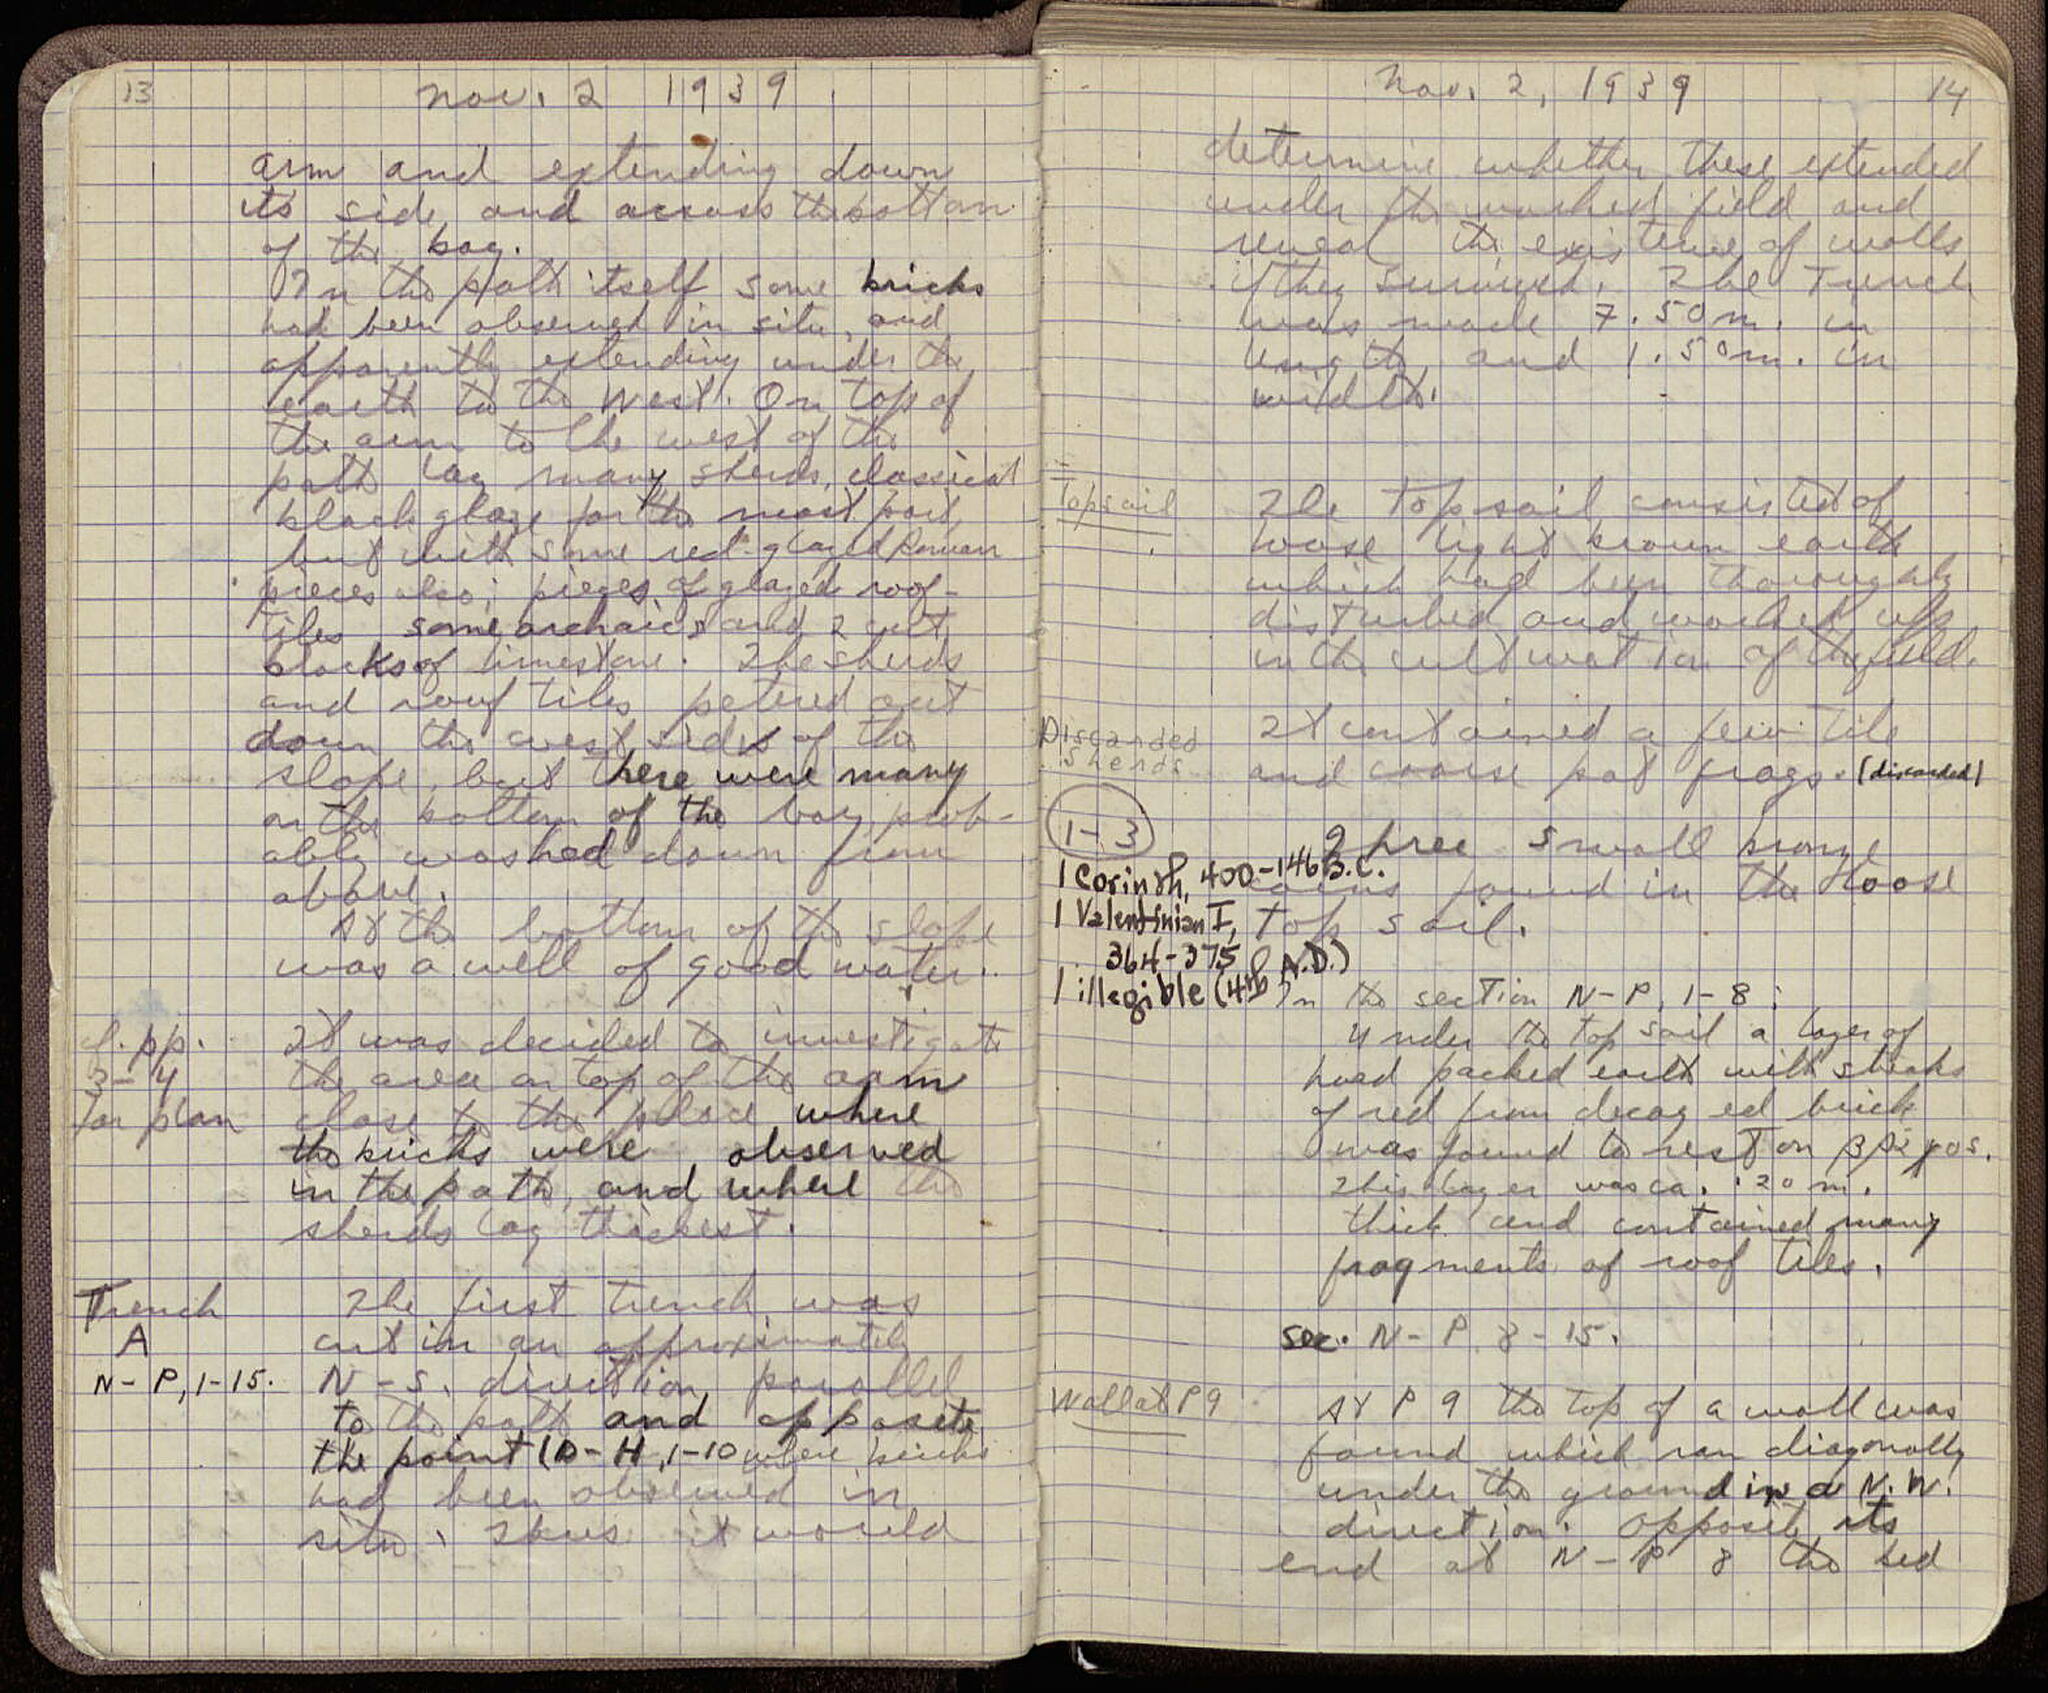 13
Nov. 2 1939
arm and extending down
its side and across the bottom
of the bay.
In the path itself some bricks
had been observed in situ, and
apparently extending under the
earth to the west. On top of
the arm to the west of the
path lay many sherds, classical
black glaze for the most part,
but with some red-glazed Roman
pieces also; pieces of glazed roof-
tiles some archaic and 2 cut
blocks of limestone. The sherds
and roof tiles petered out
down the west side of the
slope, but there were many
on the bottom of the bay, prob-
ably washed down from
above.
At the bottom of the slope
was a well of good water.
cf. pp.
3-4
for plan
It was decided to investigate
the area on top of the arm
close to the place where
the bricks were observed
in the path, and where the
sherds lay thickest.
Trench
A
N-P, 1-15.
The first trench was
cut in an approximately
N-S. direction, parallel
to the path and opposite
the point (D-H, 1-10 where bricks
had been observed in
situ. Thus it would
Nov. 2, 1939
14
determine whether these extended
under the worked field and
reveal the existence of walls
if they survived. The Trench
was made 7.50 m. in
length and 1.50 m. in
width.
Topsoil
The topsoil consisted of
loose light brown earth
which had been thoroughly
disturbed and worked up
in the cultivation of the field.
Discarded
sherds
It contained a few tile
and coarse pot frags. (discarded)
1-3
1 Corinth, 400-146 B.C.
1 Valentinian I,
364-375
1 illegible (4th A.D.)
Three small bronze
coins found in the loose
top soil.
In the section N-P, 1-8:
Under the top soil a layer of
hard packed earth with streaks
of red from decayed brick
was found to rest on βράχος.
This layer was ca. .20 m.
thick and contained many
fragments of roof tiles.
sec. N-P 8-15.
Wall at P9
At P 9 the top of a wall was
found which ran diagonally
under the ground in a N.W.
direction. Opposite its
end at N-P 8 the bed